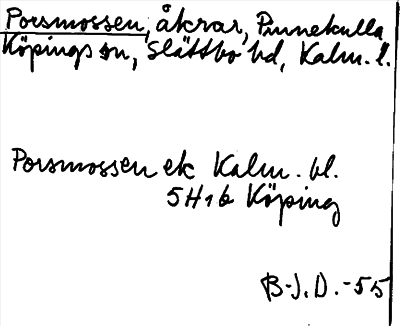 Porsmossen, åkrar, Pinnekulla
Köpings sn, Slättbo hd, Kalm. l.
Porsmossen ek Kalm. bl.
5H1b Köping
B-J. D. -55